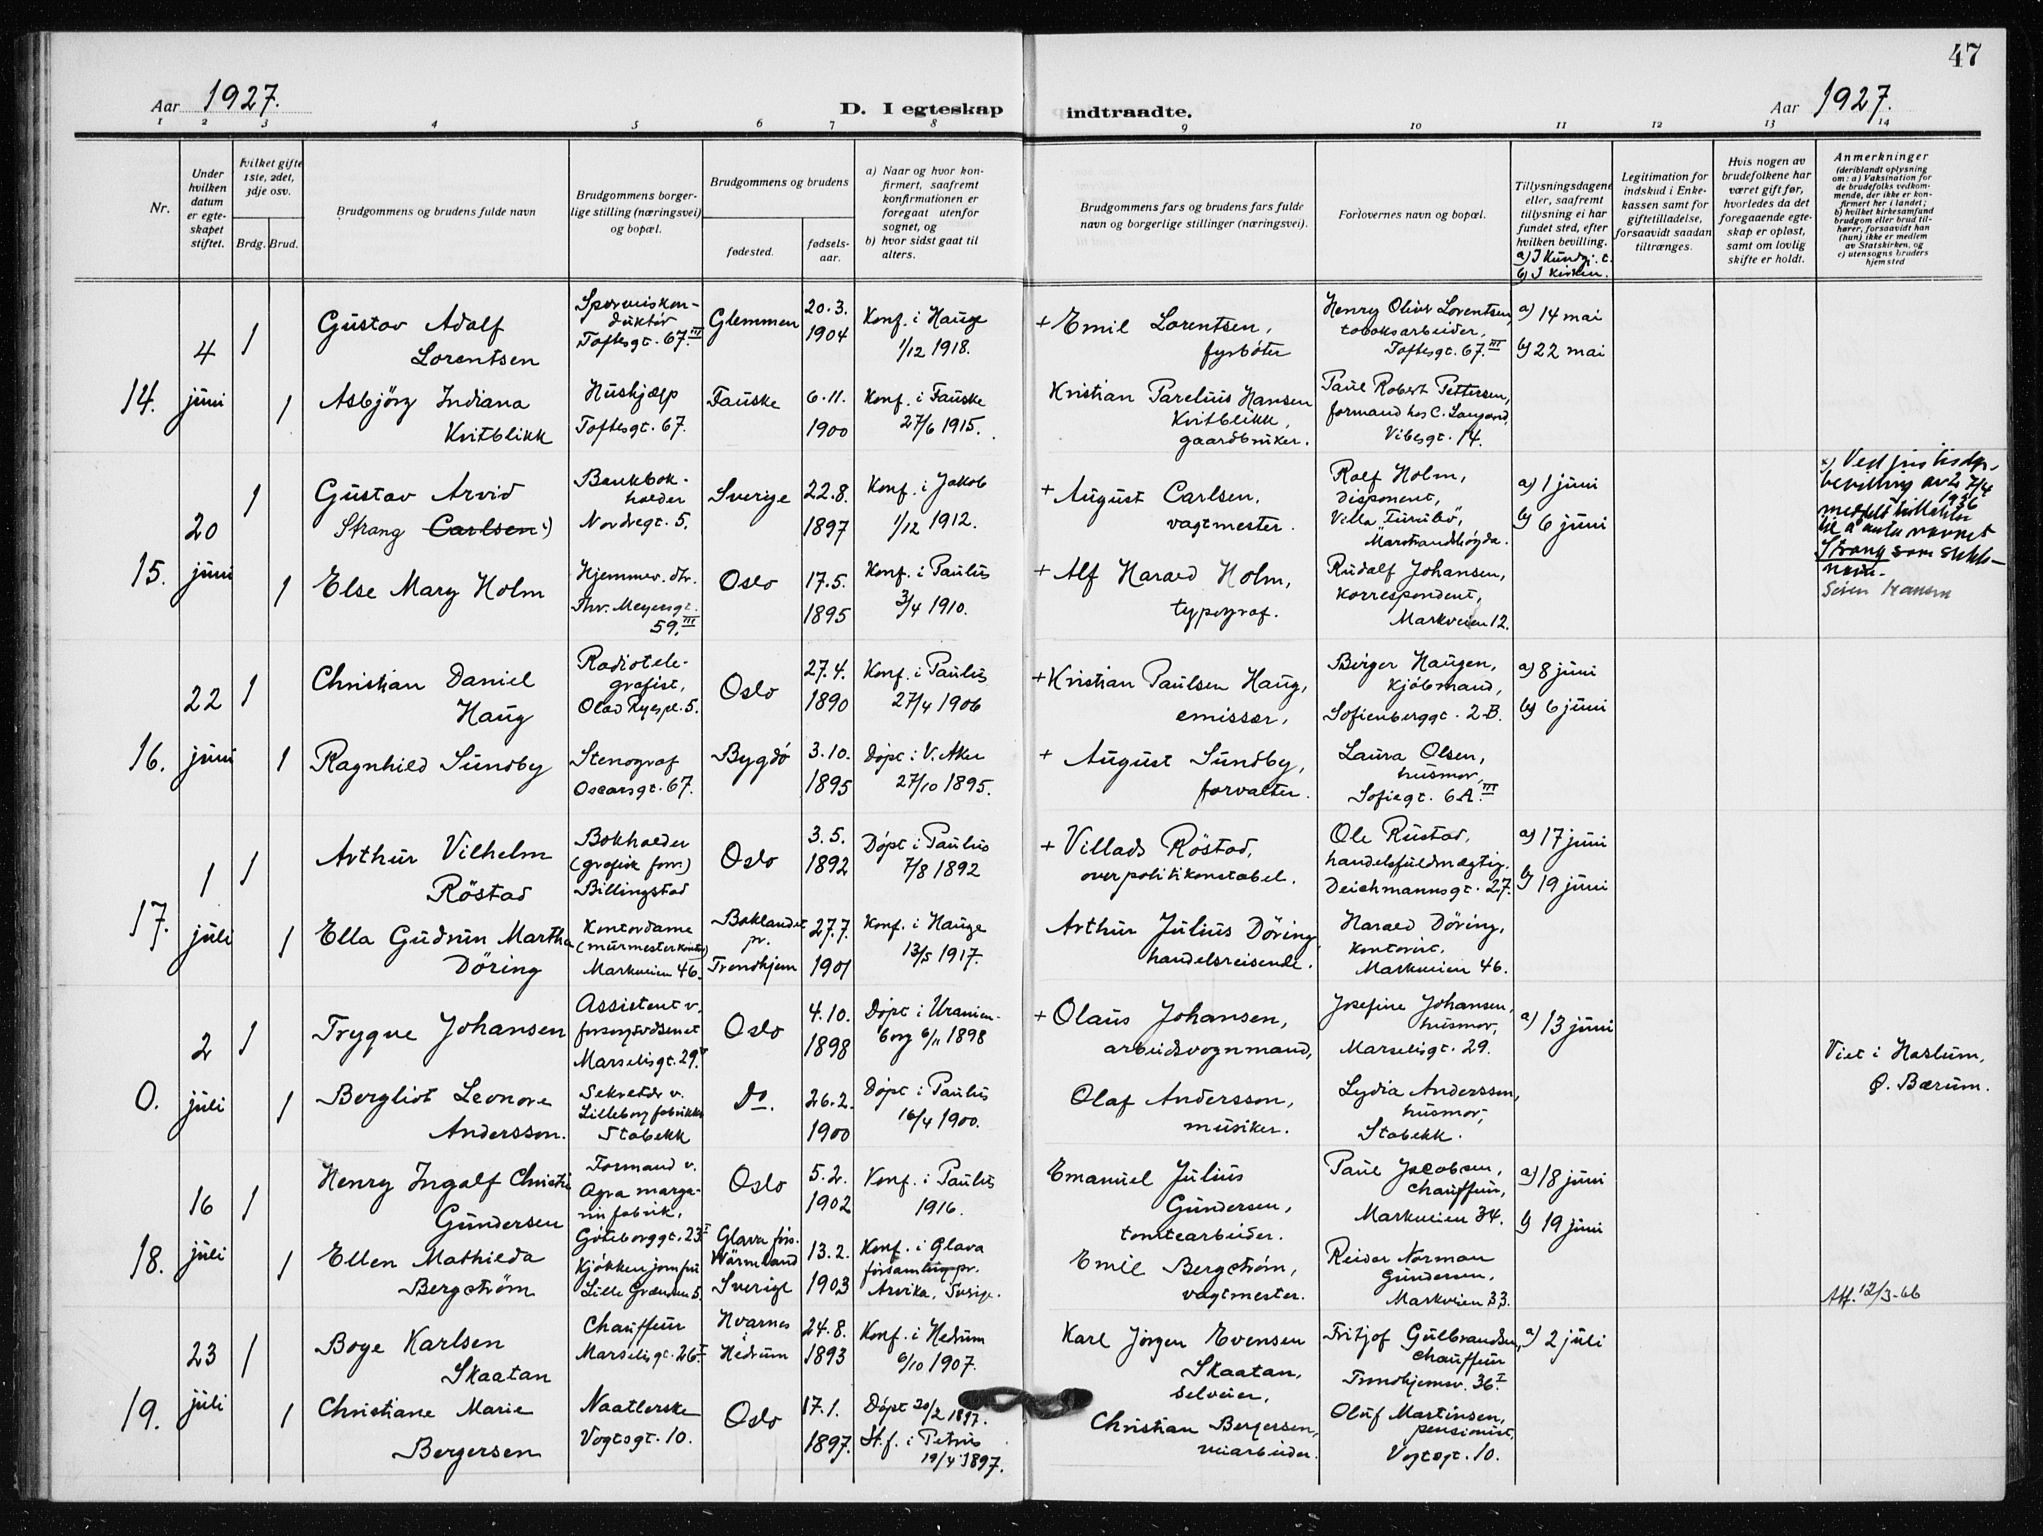 47
Aar 1927.
D. I egteskap indtraadte.
Aar 1927.
1 2 3 4 5 6 7 8 9 10 11 12 13 14
Nr.
Under
hvilken
datum
er egte-
skapet
stiftet.
Hvilket gifte
1ste, 2det,
3dje osv.
Brdg. Brud.
Brudgommens og brudens fulde navn
Brudgommens borger-
lige stilling (næringsvei)
og bopæl.
Brudgommens og brudens
fødested.
fødsels-
aar.
a) Naar og hvor kon-
firmert, saafremt
konfirmationen er
foregaat utenfor
sognet, og
b) hvor sidst gaat til
alters.
Brudgommens fars og brudens fars fulde
navn og borgerlige stillinger (næringsvei).
Forlovernes navn og bopæl.
Tillysningsdagene
eller, saafremt
tillysning ei har
fundet sted, efter
hvilken bevilling.
b) I kirken.
Legitimation for
indskud i Enke-
kassen samt for
giftetilladelse,
forsaavidt saadan
tiltrænges.
Hvis nogen av
brudefolkene har
været gift før,
hvorledes da det
foregaaende egte-
skap er opløst,
samt om lovlig
skifte er holdt.
Anmerkninger
(deriblandt oplysning
om: a) Vaksination for
de brudefolks vedkom-
mende, der ikke er kon-
firmert her i landet;
b) hvilket kirkesamfund
brudgom eller brud til-
hører, forsaavidt han
(hun) ikke er medlem
av Statskirken, og
c) utensogns bruders
hjemsted
14. 4 juni
1 Gustav Adolf
Lorentsen
Sporveiskon-
duktør
Toftesgt. 67.III
Glemmen
20.3.
1904
Konf. i Hauge
1/12 1918.
+ Emil Lorentsen,
fyrbøter
Henry Oliver Lorentsen,
tobaksarbeider,
Toftesgt. 67.III
a) 14 mai
b) 22 mai
1 Asbjörg Indiana
Kvitblikk
Hushjælp
Toftesgt. 67.
Fauske
6.11.
1900
Konf. i Fauske
27/6 1915.
Kristian Parelius Hansen
Kvitblikk,
gaardbruker.
Paul Robert Pettersen,
formand hos C. Langaard,
Vibesgt. 14.
15. 20 juni
1 Gustav Arvid
Strang Carlsen
Bankbok-
holder
Nordregt. 5.
Sverige
22.8.
1897
Konf. i Jakob
1/12 1912.
+ August Carlsen,
vagtmester.
Rolf Holm,
disponent,
Villa Furubo,
Marstrandhøgda.
a) 1 juni
b) 6 juni
x) Ved justisdep.
bevilling av 27/4
1936
meddelt tillatelse
til å anta navnet
Strang som slekts-
navn.
1 Else Mary Holm
Hjemmev. dtr.
Thv. Meyersgt.
59.III
Oslo
17.5.
1895
Konf. i Paulus
3/4 1910.
+ Alf Harald Holm,
typograf.
Rudolf Johansen,
korrespondent,
Markveien 12.
16. 22 juni
1 Christian Daniel
Haug
Radiotele-
grafist,
Olaf Ryespl. 5.
Oslo
27.4.
1890
Konf. i Paulus
27/4 1906
+ Kristian Paulsen Haug,
emissær,
Birger Haugen,
kjøbmand,
Sofienberggt. 2-B.
a) 8 juni
b) 6 juni
1 Ragnhild Sundby
Stenograf
Oscarsgt. 67.
Bygdø
3.10.
1895
Døpt i V. Aker
27/10 1895.
+ August Sundby,
forvalter.
Laura Olsen,
husmor,
Sofiegt. 6A.III
17. 1 juli
1 Arthur Vilhelm
Röstad
Bokholder
(grafisk forr.)
Billingstad
Oslo
3.5.
1892
Døpt i Paulus
7/8 1892
+ Villads Röstad,
overpolitikonstabel.
Ole Rustad,
handelsfuldmægtig.
Deichmannsgt. 27.
a) 17 juni
b) 19 juni
1 Ella Gudrun Martha
Döring
Kontordame
Markveien 46.
Baklandet
pr.
Trondhjem
27.7.
1901
Konf. i Hauge
13/5 1917.
Arthur Julius Döring,
handelsreisende.
Harald Döring,
kontorist.
Markveien 46.
0. 2 juli
1 Trygve Johansen
Assistent v.
forsorgsvæsenet
Marselisgt. 29.
Oslo
4.10.
1898
Døpt i Uranien-
borg 6/11 1898
+ Olaus Johansen,
arbeidsvognmand,
Josefine Johansen,
husmor,
Marselisgt. 29.
a) 13 juni
Viet i Haslum,
Ø. Bærum.
1 Bergliot Leonore
Andersson.
Sekretær v.
Lilleborg fabrikker
Stabekk
Do.
26.2.
1900
Døpt i Paulus
16/4 1900.
Olaf Andersson,
musiker.
Lydia Andersson,
husmor,
Stabekk.
18. 16 juli
1 Henry Ingolf Christie
Gundersen
Formand v.
Agra marga-
rinfabrik,
Göteborggt. 23I
Oslo
5.2.
1902
Konf. i Paulus
1916.
Emanuel Julius
Gundersen,
tomtearbeider.
Paul Jacobsen,
chauffeur,
Markveien 34.
a) 18 juni
b) 19 juni
1 Ellen Mathilda
Bergström
Kjøkkenjomfru
Lille Grænsen 5.
Glava förs.
Wärmland
Sverige
13.2.
1903
Konf. i Glava
församling pr.
Arvika, Sverige.
Emil Bergström,
vagtmester.
Reidar Norman
Gundersen,
Markveien 33.
Att. 12/3-66
19. 23 juli
1 Boye Karlsen
Skaatan
Chauffeur
Marselisgt. 26I
Hvarnes
i
Hedrum
24.8.
1893
Konf. i Hedrum
6/10 1907.
Karl Jørgen Evensen
Skaatan,
selveier,
Fritjof Gulbrandsen,
chauffeur
Trondhjemsv. 36.I
a) 2 juli
1 Christiane Marie
Bergersen
Naatlerske
Vogtsgt. 10.
Oslo
17.1.
1897.
Døpt 20/2 1897.
St.f. i Petrus
19/4 1897.
Christian Bergersen,
veiarbeider.
Oluf Martinsen,
pensionist,
Vogtsgt. 10.